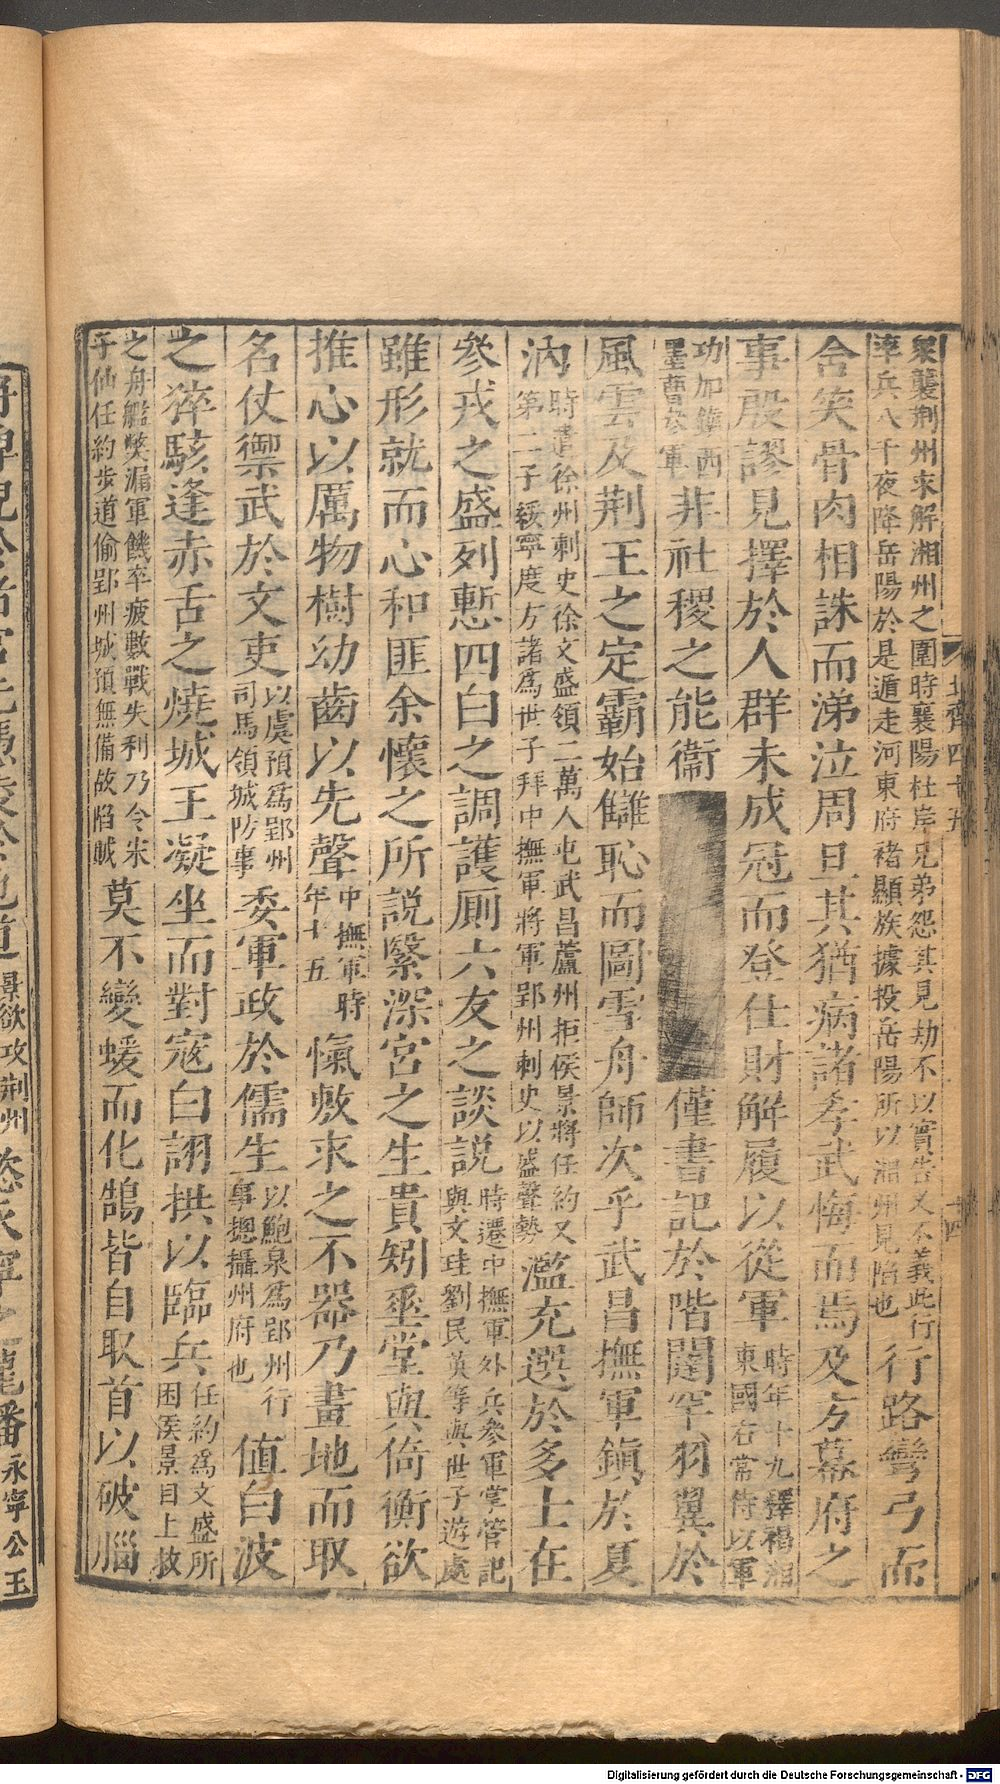 衆襲荆州求解湘州之圍時襄陽杜岸兄弟怨其見劫不以實告又不義此行
率兵八千夜降岳陽於是遁走河東府褚顯族據投岳陽所以湘州見陷也
行路彎弓而
含笑骨肉相誅而涕泣周旦其猶病諸孝武悔而焉及方幕府之
事殷謬見擇於人群未成冠而登仕財解履以從軍
時年十九釋褐湘
東國右常侍以軍
功加鎮西
墨曹參軍
非社稷之能衞
僅書記於階闥罕羽翼於
風雲及荆王之定霸始讎恥而圖雪舟師次乎武昌撫軍鎮於夏
汭
時遣徐州刺史徐文盛領二萬人屯武昌蘆州拒侯景將任約又
第二子綏寧度方諸爲世子拜中撫軍將軍郢州刺史以盛聲勢
濫充選於多士在
參戎之盛列慙四白之調護厠六友之談説
時遷中撫軍外兵參軍掌管記
與文珪劉民英等與世子遊處
雖形就而心和匪余懷之所説繄深宮之生貴矧垂堂與倚衡欲
推心以厲物樹幼齒以先聲
中撫軍時
年十五
愾敷求之不器乃畫地而取
名仗禦武於文吏
以虞預爲郢州
司馬領城防事
委軍政於儒生
以鮑泉爲郢州行
事摠攝州府也
值白波
之猝駭逢赤舌之燒城王凝坐而對寇白詡拱以臨兵
任約爲文盛所
困侯景自上救
之舟艦獘漏軍饑卒疲數戰失利乃令宋
子仙任約步道偷郢州城預無備故陷賊
莫不變蝯而化鵠皆自取首以破腦
北齊四十五
十四
景欲攻荆州
永寧公王
Digitalisierung gefördert durch die Deutsche Forschungsgemeinschaft - DFG